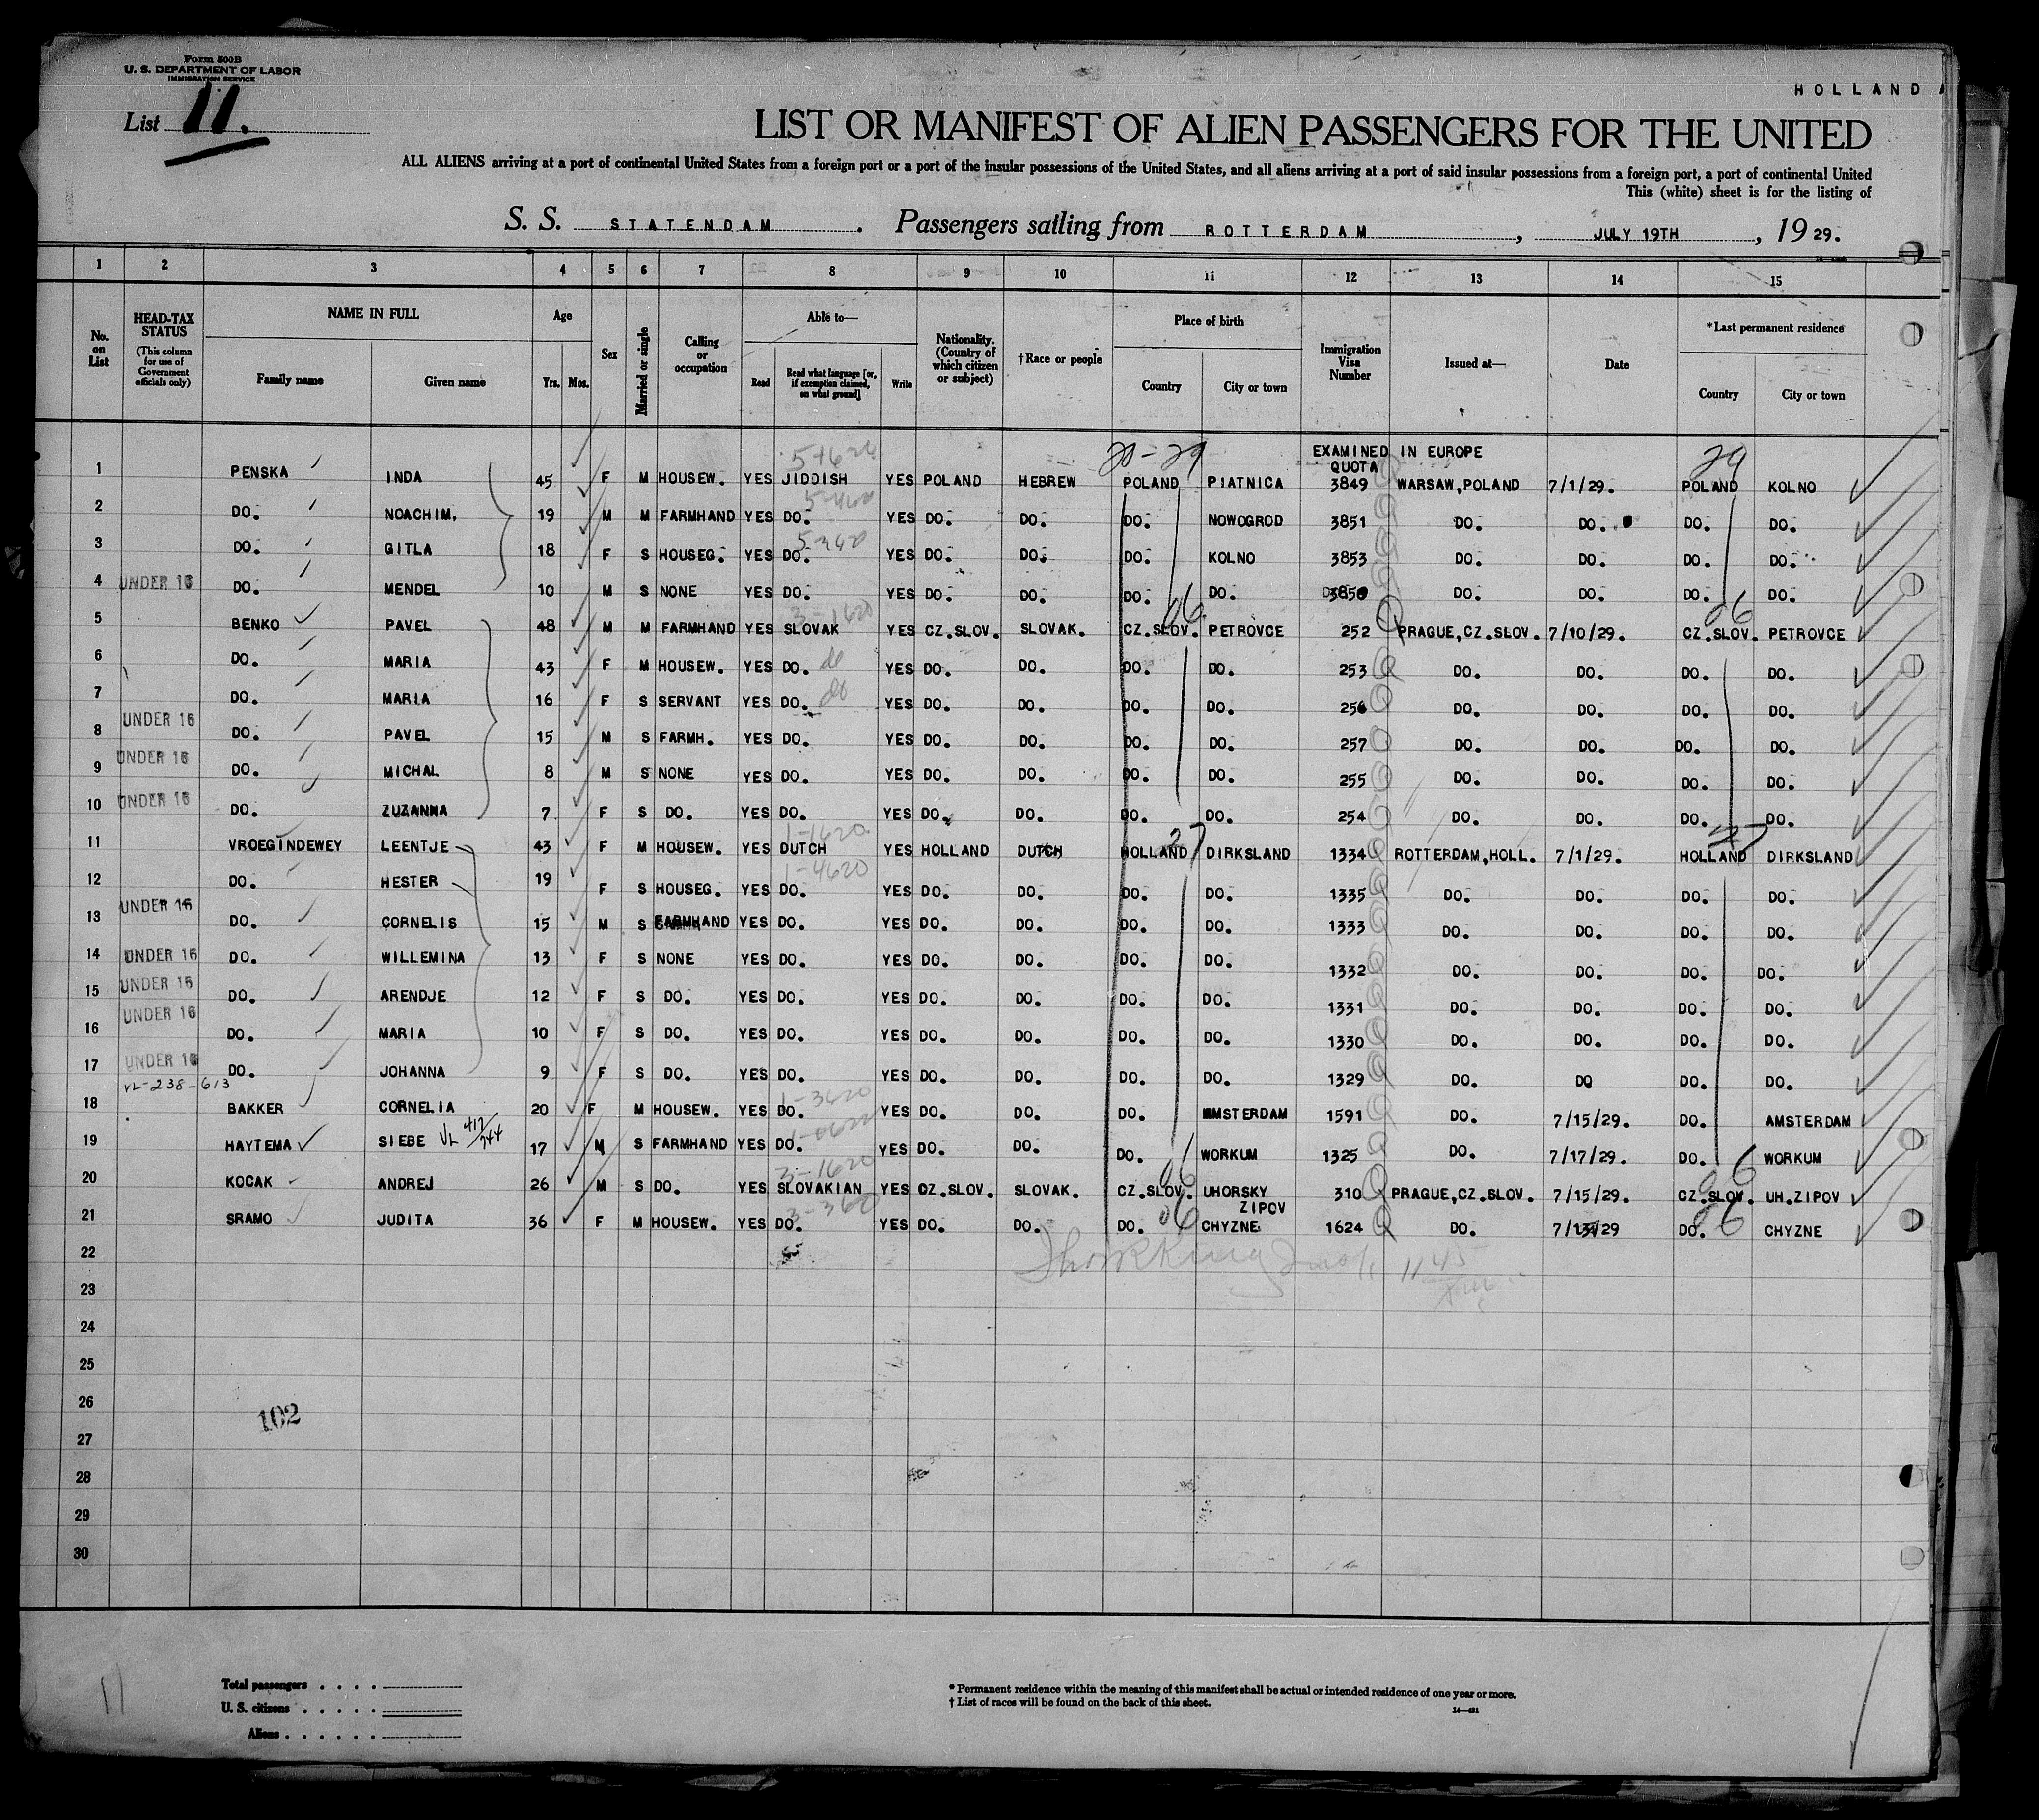 Form 500B
U. S. DEPARTMENT OF LABOR
IMMIGRATION SERVICE
HOLLAND
List 11.
LIST OR MANIFEST OF ALIEN PASSENGERS FOR THE UNITED
ALL ALIENS arriving at a port of continental United States from a foreign port or a port of the insular possessions of the United States, and all aliens arriving at a port of said insular possessions from a foreign port, a port of continental United
This (white) sheet is for the listing of
S. S. STATENDAM. Passengers sailing from ROTTERDAM, JULY 19TH, 1929.
1 2 3 4 5 6 7 8 9 10 11 12 13 14 15
No. on List HEAD-TAX STATUS (This column for use of Government officials only) NAME IN FULL Family name Given name Age Yrs. Mos. Sex Married or single Calling or occupation Able to— Read Read what language [or, if exemption claimed, on what ground] Write Nationality. (Country of which citizen or subject) †Race or people Place of birth Country City or town Immigration Visa Number Issued at— Date *Last permanent residence Country City or town
EXAMINED IN EUROPE
QUOTA
5+626 20-29 29
1 PENSKA INDA 45 F M HOUSEW. YES JIDDISH YES POLAND HEBREW POLAND PIATNICA 3849 WARSAW, POLAND 7/1/29. POLAND KOLNO
2 DO. NOACHIM, 19 M M FARMHAND YES DO. YES DO. DO. DO. NOWOGROD 3851 DO. DO. DO. DO.
3 DO. GITLA 18 F S HOUSEG. YES DO. YES DO. DO. DO. KOLNO 3853 DO. DO. DO. DO.
4 UNDER 16 DO. MENDEL 10 M S NONE YES DO. YES DO. DO. DO. DO. 3850 DO. DO. DO. DO.
3-1620 06 06
5 BENKO PAVEL 48 M M FARMHAND YES SLOVAK YES CZ.SLOV. SLOVAK. CZ.SLOV. PETROVCE 252 PRAGUE,CZ.SLOV. 7/10/29. CZ.SLOV. PETROVCE
6 DO. MARIA 43 F M HOUSEW. YES DO. do YES DO. DO. DO. DO. 253 DO. DO. DO. DO.
7 DO. MARIA 16 F S SERVANT YES DO. do YES DO. DO. DO. DO. 256 DO. DO. DO. DO.
8 UNDER 16 DO. PAVEL 15 M S FARMH. YES DO. YES DO. DO. DO. DO. 257 DO. DO. DO. DO.
9 UNDER 16 DO. MICHAL 8 M S NONE YES DO. YES DO. DO. DO. DO. 255 DO. DO. DO. DO.
10 UNDER 16 DO. ZUZANNA 7 F S DO. YES DO. YES DO. DO. DO. DO. 254 DO. DO. DO. DO.
1-1620 27 27
11 VROEGINDEWEY LEENTJE 43 F M HOUSEW. YES DUTCH YES HOLLAND DUTCH HOLLAND DIRKSLAND 1334 ROTTERDAM,HOLL. 7/1/29. HOLLAND DIRKSLAND
1-4620
12 DO. HESTER 19 F S HOUSEG. YES DO. YES DO. DO. DO. DO. 1335 DO. DO. DO. DO.
13 UNDER 16 DO. CORNELIS 15 M S FARMHAND YES DO. YES DO. DO. DO. DO. 1333 DO. DO. DO. DO.
14 UNDER 16 DO. WILLEMINA 13 F S NONE YES DO. YES DO. DO. DO. DO. 1332 DO. DO. DO. DO.
15 UNDER 16 DO. ARENDJE 12 F S DO. YES DO. YES DO. DO. DO. DO. 1331 DO. DO. DO. DO.
16 UNDER 16 DO. MARIA 10 F S DO. YES DO. YES DO. DO. DO. DO. 1330 DO. DO. DO. DO.
17 UNDER 16 DO. JOHANNA 9 F S DO. YES DO. YES DO. DO. DO. DO. 1329 DO. DO DO. DO.
VL-238-613 1-3620
18 BAKKER CORNELIA 20 F M HOUSEW. YES DO. YES DO. DO. DO. AMSTERDAM 1591 DO. 7/15/29. DO. AMSTERDAM
19 HAYTEMA SIEBE VL 417/244 17 M S FARMHAND YES DO. YES DO. DO. DO. WORKUM 1325 DO. 7/17/29. DO. WORKUM
3-1620 06 06
20 KOCAK ANDREJ 26 M S DO. YES SLOVAKIAN YES CZ.SLOV. SLOVAK. CZ.SLOV. UHORSKY ZIPOV 310 PRAGUE,CZ.SLOV. 7/15/29. CZ.SLOV. UH.ZIPOV
3-3620 06 06
21 SRAMO JUDITA 36 F M HOUSEW. YES DO. YES DO. DO. DO. CHYZNE 1624 DO. 7/13/29 DO. CHYZNE
22
1145
23
24
25
26
102
27
28
29
30
11
Total passengers
U. S. citizens
Aliens
* Permanent residence within the meaning of this manifest shall be actual or intended residence of one year or more.
† List of races will be found on the back of this sheet.
14—431